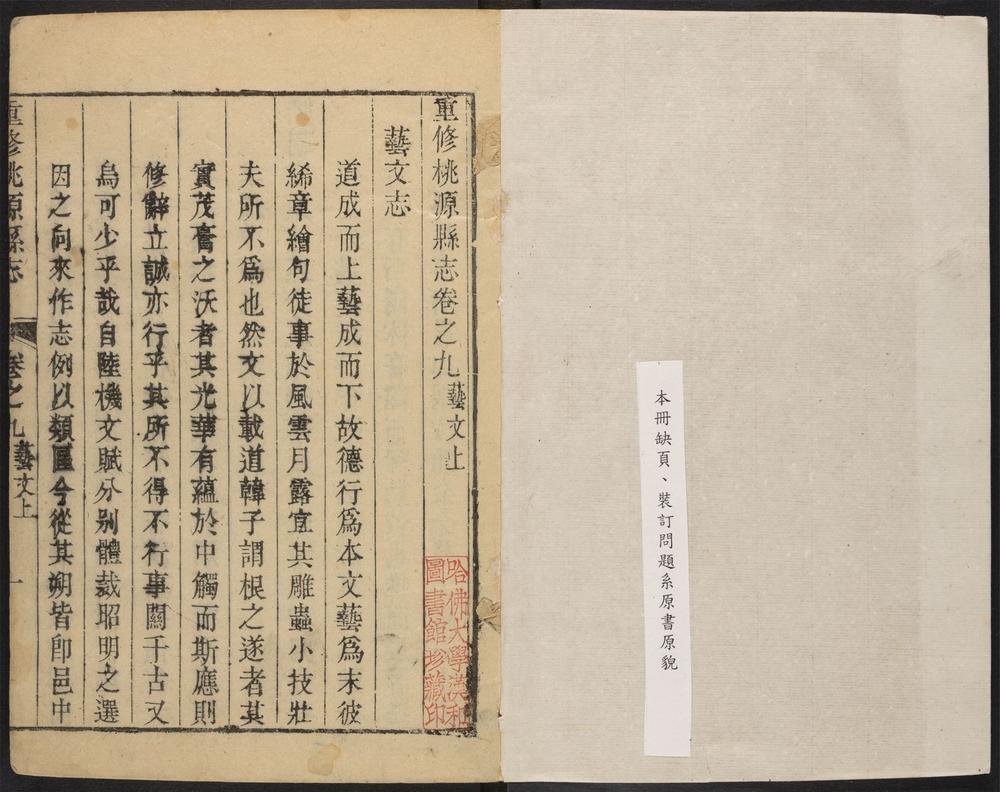 本冊缺頁、裝訂問題系原書原貌
重修桃源縣志卷之九藝文上
哈佛大學漢和
圖書館珍藏印
藝文志
道成而上藝成而下故德行爲本文藝爲末彼
絺章繪句徒事於風雲月露宜其雕蟲小技壯
夫所不爲也然文以載道韓子謂根之遂者其
實茂膏之沃者其光華有蘊於中觸而斯應則
修辭立誠亦行乎其所不得不行事關千古又
烏可少乎哉自陸機文賦分別體裁昭明之選
因之向來作志例以類區今從其朔皆卽邑中
重修桃源縣志
卷之九藝文上
一